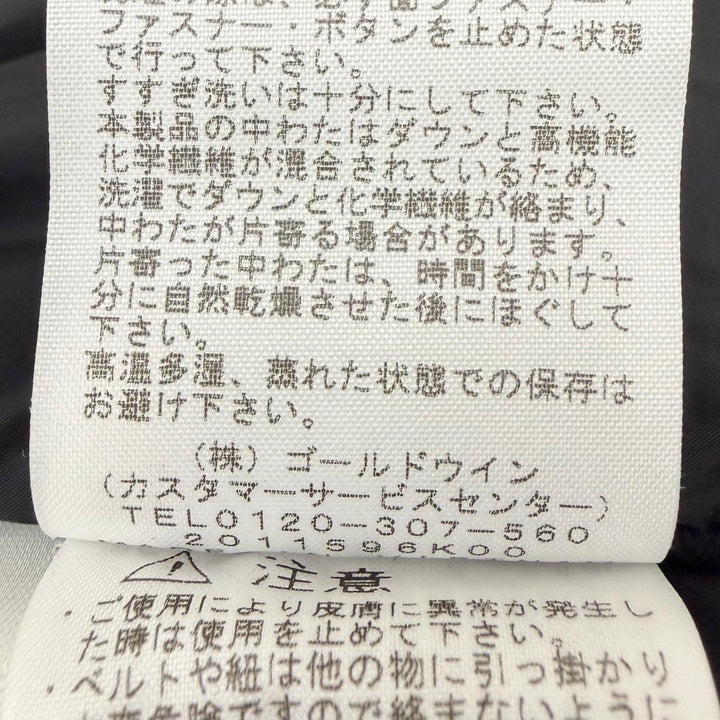 ファスナー・ボタンを止めた状態
で行って下さい。
すすぎ洗いは十分にして下さい。
本製品の中わたはダウンと高機能
化学繊維が混合されているため、
洗濯でダウンと化学繊維が絡まり、
中わたが片寄る場合があります。
片寄った中わたは、時間をかけ十
分に自然乾燥させた後にほぐして
下さい。
高温多湿、蒸れた状態での保存は
お避け下さい。
(株) ゴールドウイン
(カスタマーサービスセンター)
TEL0120-307-560
2011S96K00
注意
・ご使用により皮膚に異常が発生し
た時は使用を止めて下さい。
・ベルトや紐は他の物に引っ掛かり
危険ですので絡まないように